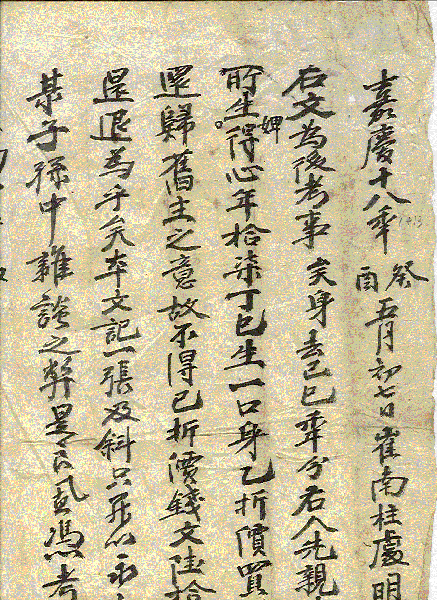 嘉慶十八年癸酉五月初七日崔南柱處明
右文為後考事矣身去己巳年分右人先親
所生婢得心年拾柒丁巳生一口身乙折價買
還歸舊主之意故不得已折價錢文陸拾
還退為乎矣本文記一張及斜只幷以永
某子孫中雜談之弊是卽憑考